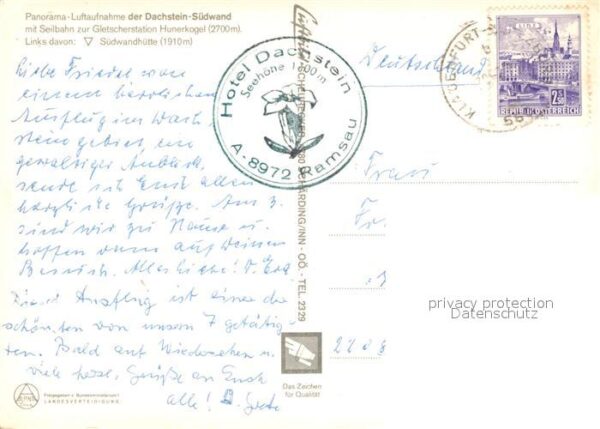 Panorama-Luftaufnahme der Dachstein-Südwand
mit Seilbahn zur Gletscherstation Hunerkogel (2700m).
Links davon: ▽ Südwandhütte (1910m)
Liebe Friedel von
einem herrlichen
Ausflug ins Dach
steingebiet, ein
gewaltiger Anblick,
sende ich Euch allen
herzliche Grüße. Am 3.
sind wir zu Hause u.
hoffen dann auf Deinen
Besuch. Alles Liebe!
Dieser Ausflug ist einer der
schönsten von unsern 7 getätig
ten. Bald auf Wiedersehen u.
viele herzl. Grüße an Euch
alle!
Hotel Dachstein
Seehöhe 1100m
A-8972 Ramsau
Deutschland
KLAGENFURT
LINZ
2.50
REPUBLIK ÖSTERREICH
Frau
Fr.
SCHÄRDING/INN - OÖ. - TEL. 2329
privacy protection
Datenschutz
Das Zeichen
für Qualität
Freigegeben v. Bundesministerium f.
LANDESVERTEIDIGUNG